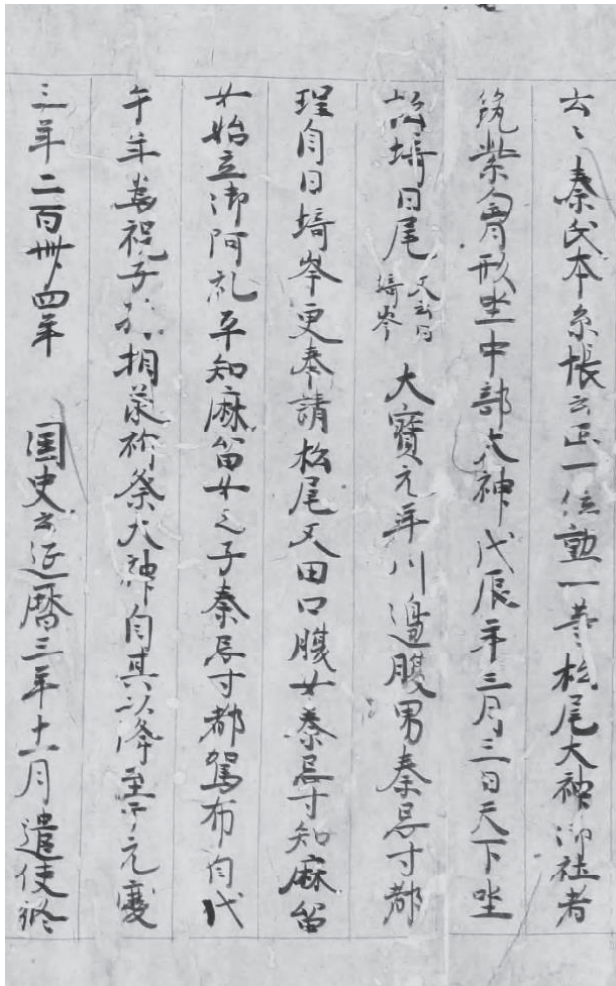 云〻秦氏本系帳云正一位勲一等松尾大神御社者
筑紫胷形坐中部大神戊辰年三月三日天下坐
松埼日尾 又云日埼岑 大寶元年川邊腹男秦忌寸都
理自日埼岑更奉請松尾又田口腹女秦忌寸知麻留
女始立御阿礼乎知麻留女之子秦忌寸都駕布自戊
午年為祝子孫相承祈祭大神自其以降至于元慶
三年二百卌四年 国史云延暦三年十一月遣使修